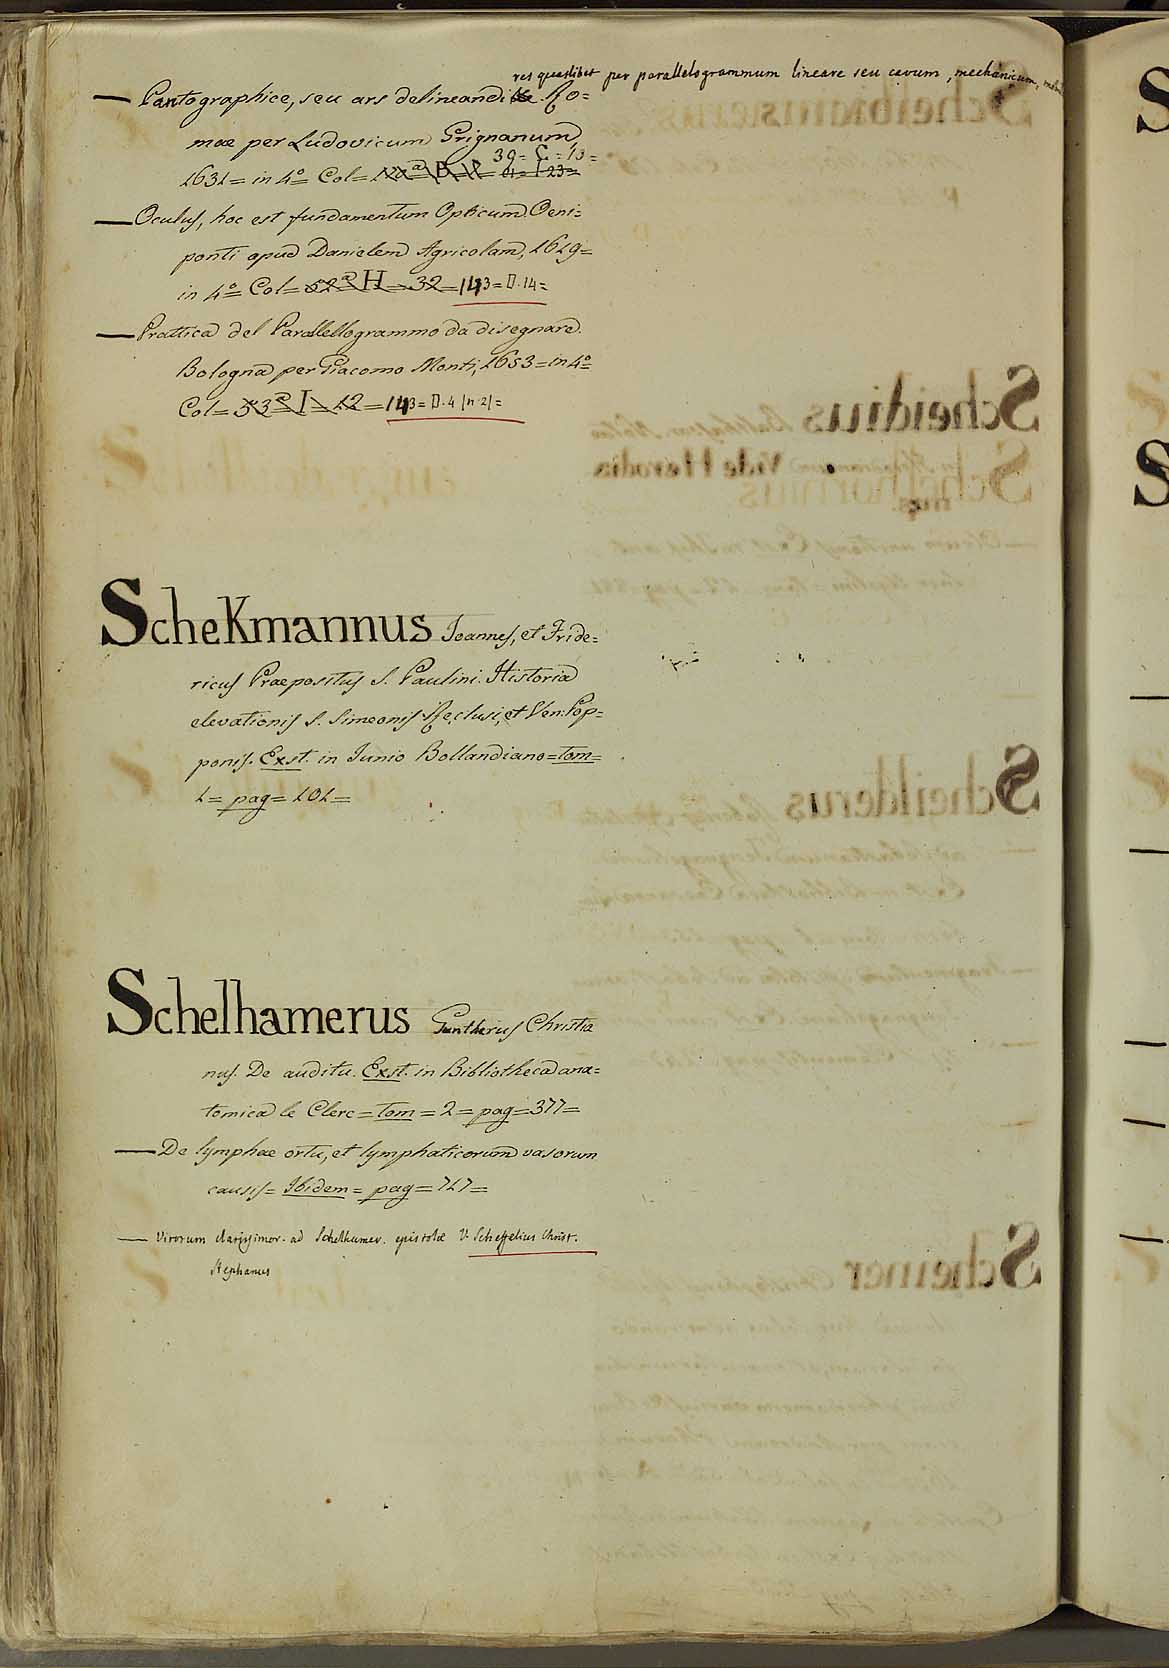 res quaslibet per parallelogrammum lineare seu cavum, mechanicum,
— Pantographice, seu ars delineandi Ro=
mae per Ludovicum Grignanum
39= C =13=
1631= in 4º Col=
— Oculus, hoc est fundamentum Opticum. Oeni=
ponti apud Danielem Agricolam, 1619=
in 4º= Col= 52ª H 32 = 143= D.14=
— Prattica del Parallellogrammo da disegnare.
Bologna per Giacomo Monti, 1653= in 4º=
Col= 53ª I 12 = 143= D.4 |n.2|=
ScheKmannus Joannes, et Fride=
ricus Praepositus S. Paulini. Historia
elevationis S. Simeonis Reclusi, et Ven: Pop=
ponis. Exst. in Junio Bollandiano= tom=
1= pag= 101=
Schelhamerus Guntherus Christia
nus. De auditu. Exst. in Bibliotheca ana=
tomica le Clerc= tom= 2= pag= 377=
— De lymphae ortu, et lymphaticorum vasorum
causis= Ibidem= pag= 717=
— Virorum clarissimor. ad Schelhamer. epistolae V. Scheffelius Christ.
Stephanus